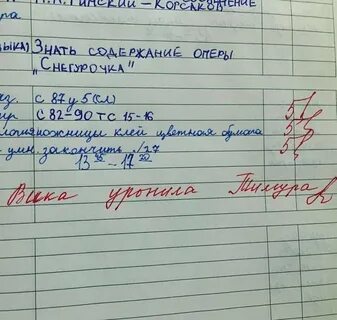 Н.А. Римский-Корсаков
ра
зыка) Знать содержание оперы
"Снегурочка"
яз. с 87 у 5 (сл)
ир с 82-90 тс 15-16
логия ножницы клей цветная бумага
закончить
13 – 17
5
5
5
Вика уронила Тимура